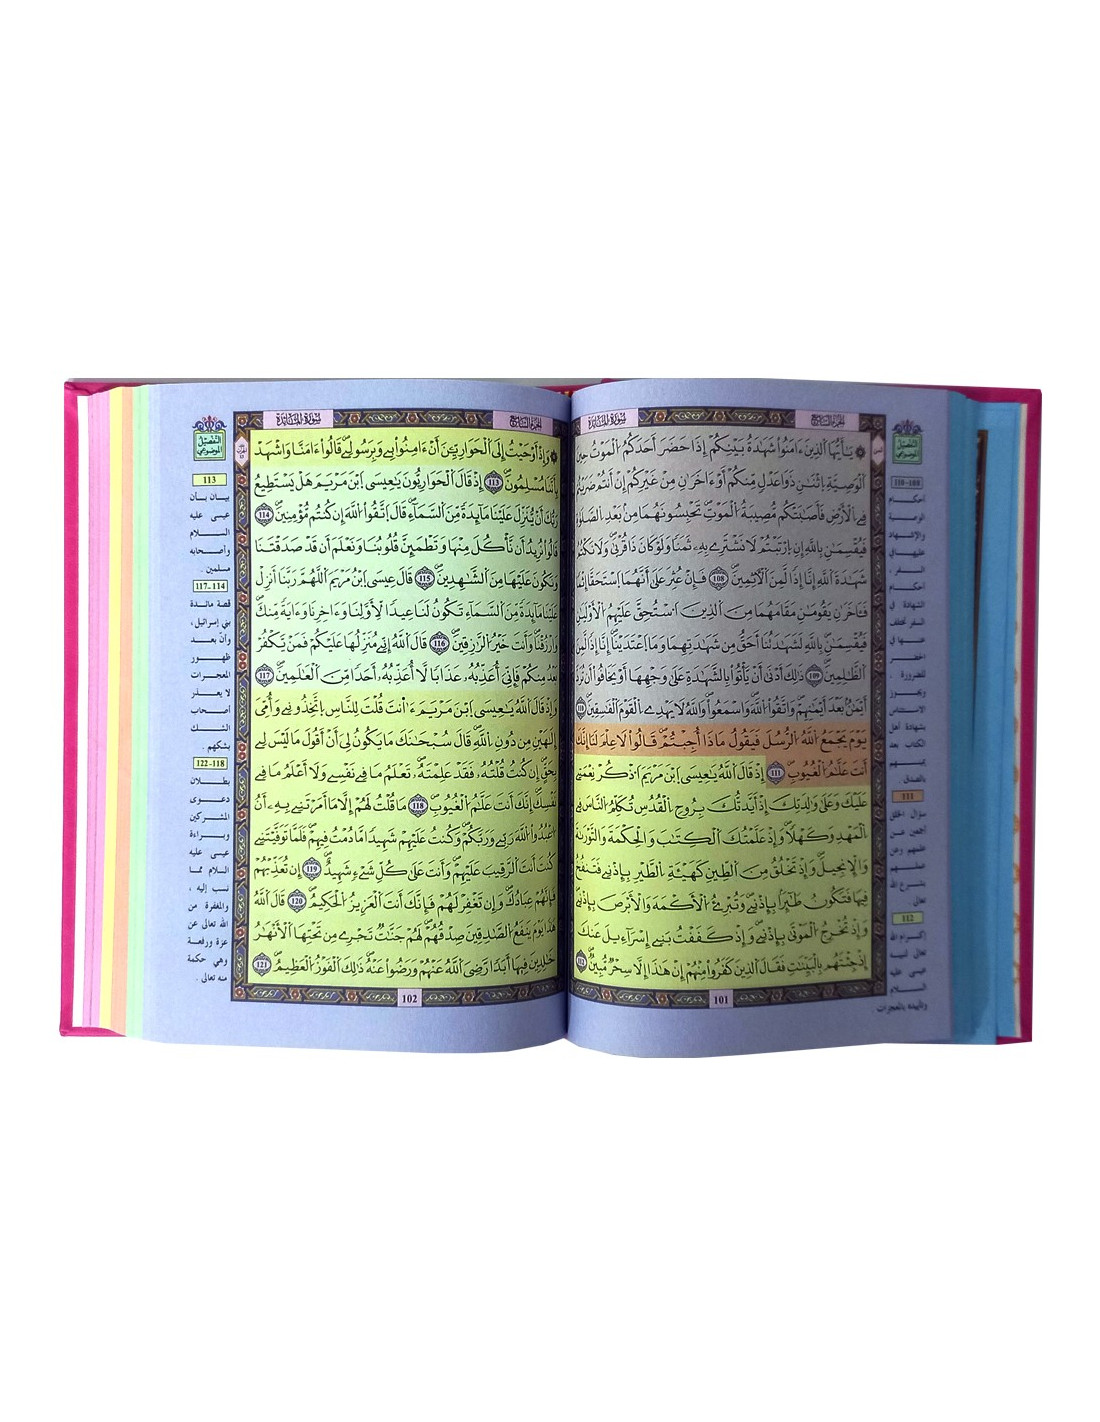 سورة المائدة
الجزء السابع
التفصيل الموضوعي
يَٰأَيُّهَا اَلذِينَ ءَامَنُواْ شَهَٰدَةُ بَيْنِكُمْ إِذَا حَضَرَ أَحَدَكُمُ اُلْمَوْتُ حِينَ
اَلْوَصِيَّةِ اِثْنَٰنِ ذَوَا عَدْلٖ مِّنكُمْ أَوَ ءَاخَرَٰنِ مِنْ غَيْرِكُمْ إِنْ أَنتُمْ ضَرَبْتُمْ
فِے اِلْأَرْضِ فَأَصَٰبَتْكُم مُّصِيبَةُ اُلْمَوْتِ تَحْبِسُونَهُمَا مِنۢ بَعْدِ اِلصَّلَوٰةِ
فَيُقْسِمَٰنِ بِاللَّهِ إِنِ اِرْتَبْتُمْ لَا نَشْتَرِے بِهِۦ ثَمَناٗ وَلَوْ كَانَ ذَا قُرْبَىٰ وَلَا نَكْتُمُ
شَهَٰدَةَ اَللَّهِ إِنَّا إِذاٗ لَّمِنَ اَلْأَثِمِينَ 108 فَإِنْ عُثِرَ عَلَىٰ أَنَّهُمَا اَسْتَحَقَّا إِثْماٗ
فَـَٔاخَرَٰنِ يَقُومَٰنِ مَقَامَهُمَا مِنَ اَلذِينَ اَسْتُحِقَّ عَلَيْهِمُ اُلْأَوْلَيَٰنِ
فَيُقْسِمَٰنِ بِاللَّهِ لَشَهَٰدَتُنَا أَحَقُّ مِن شَهَٰدَتِهِمَا وَمَا اَعْتَدَيْنَا إِنَّا إِذاٗ لَّمِنَ
اَلظَّٰلِمِينَ 109 ذَٰلِكَ أَدْنَىٰ أَنْ يَّأْتُواْ بِالشَّهَٰدَةِ عَلَىٰ وَجْهِهَا أَوْ يَخَافُواْ أَن تُرَدَّ
أَيْمَٰنُۢ بَعْدَ أَيْمَٰنِهِمْ وَاتَّقُواْ اُللَّهَ وَاسْمَعُواْ وَاللَّهُ لَا يَهْدِے اِلْقَوْمَ اَلْفَٰسِقِينَ 110
يَوْمَ يَجْمَعُ اُللَّهُ اُلرُّسُلَ فَيَقُولُ مَاذَا أُجِبْتُمْ قَالُواْ لَا عِلْمَ لَنَا إِنَّكَ
أَنتَ عَلَّٰمُ اُلْغُيُوبِ 111 إِذْ قَالَ اَللَّهُ يَٰعِيسَى اَبْنَ مَرْيَمَ اَذْكُرْ نِعْمَتِے
عَلَيْكَ وَعَلَىٰ وَٰلِدَتِكَ إِذْ أَيَّدتُّكَ بِرُوحِ اِلْقُدُسِ تُكَلِّمُ اُلنَّاسَ فِے
اِلْمَهْدِ وَكَهْلاٗ وَإِذْ عَلَّمْتُكَ اَلْكِتَٰبَ وَالْحِكْمَةَ وَالتَّوْرَىٰةَ
وَالْإِنجِيلَ وَإِذْ تَخْلُقُ مِنَ اَلطِّينِ كَهَيْـَٔةِ اِلطَّيْرِ بِإِذْنِے فَتَنفُخُ
فِيهَا فَتَكُونُ طَٰئِراَۢ بِإِذْنِے وَتُبْرِئُ اُلْأَكْمَهَ وَالْأَبْرَصَ بِإِذْنِے
وَإِذْ تُخْرِجُ اُلْمَوْتَىٰ بِإِذْنِے وَإِذْ كَفَفْتُ بَنِے إِسْرَآءِيلَ عَنكَ
إِذْ جِئْتَهُم بِالْبَيِّنَٰتِ فَقَالَ اَلذِينَ كَفَرُواْ مِنْهُمْ إِنْ هَٰذَا إِلَّا سِحْرٌ مُّبِينٌ 112
101
110-108
أحكام
الوصية
والإشهاد
عليها في
السفر،
أحكام
الشهادة في
السفر تختلف
عنها في
الحضر
للضرورة.
ويجوز
الاستئناس
بشهادة أهل
الكتاب بعد
يمينهم
بالصدق.
111
سؤال الخلق
أجمعين عن
علمهم وعن
عملهم
بشرع الله
تعالى
112
إكرام الله
تعالى لنبيه
عيسى عليه
السلام
وتأييده بالمعجزات.
سورة المائدة
الجزء السابع
التفصيل الموضوعي
وَإِذَ اَوْحَيْتُ إِلَى اَلْحَوَارِيِّـۧنَ أَنَ ءَامِنُواْ بِے وَبِرَسُولِے قَالُواْ ءَامَنَّا وَاشْهَدْ
بِأَنَّنَا مُسْلِمُونَ 113 إِذْ قَالَ اَلْحَوَارِيُّونَ يَٰعِيسَى اَبْنَ مَرْيَمَ هَلْ يَسْتَطِيعُ
رَبُّكَ أَنْ يُّنَزِّلَ عَلَيْنَا مَآئِدَةٗ مِّنَ اَلسَّمَآءِ قَالَ اَتَّقُواْ اُللَّهَ إِن كُنتُم مُّؤْمِنِينَ 114
قَالُواْ نُرِيدُ أَن نَّأْكُلَ مِنْهَا وَتَطْمَئِنَّ قُلُوبُنَا وَنَعْلَمَ أَن قَدْ صَدَقْتَنَا
وَنَكُونَ عَلَيْهَا مِنَ اَلشَّٰهِدِينَ 115 قَالَ عِيسَى اَبْنُ مَرْيَمَ اَللَّهُمَّ رَبَّنَا أَنزِلْ
عَلَيْنَا مَآئِدَةٗ مِّنَ اَلسَّمَآءِ تَكُونُ لَنَا عِيداٗ لِّأَوَّلِنَا وَءَاخِرِنَا وَءَايَةٗ مِّنكَ
وَارْزُقْنَا وَأَنتَ خَيْرُ اُلرَّٰزِقِينَ 116 قَالَ اَللَّهُ إِنِّے مُنَزِّلُهَا عَلَيْكُمْ فَمَنْ يَّكْفُرْ
بَعْدُ مِنكُمْ فَإِنِّيَ أُعَذِّبُهُۥ عَذَاباٗ لَّا أُعَذِّبُهُۥ أَحَداٗ مِّنَ اَلْعَٰلَمِينَ 117
وَإِذْ قَالَ اَللَّهُ يَٰعِيسَى اَبْنَ مَرْيَمَ ءَآنتَ قُلْتَ لِلنَّاسِ اِتَّخِذُونِے وَأُمِّيَ
إِلَٰهَيْنِ مِن دُونِ اِللَّهِ قَالَ سُبْحَٰنَكَ مَا يَكُونُ لِيَ أَنَ اَقُولَ مَا لَيْسَ لِے
بِحَقٍّ إِن كُنتُ قُلْتُهُۥ فَقَدْ عَلِمْتَهُۥ تَعْلَمُ مَا فِے نَفْسِے وَلَا أَعْلَمُ مَا فِے
نَفْسِكَ إِنَّكَ أَنتَ عَلَّٰمُ اُلْغُيُوبِ 118 مَا قُلْتُ لَهُمْ إِلَّا مَا أَمَرْتَنِے بِهِۦ أَنُ
اُعْبُدُواْ اُللَّهَ رَبِّے وَرَبَّكُمْ وَكُنتُ عَلَيْهِمْ شَهِيداٗ مَّا دُمْتُ فِيهِمْ فَلَمَّا تَوَفَّيْتَنِے
كُنتَ أَنتَ اَلرَّقِيبَ عَلَيْهِمْ وَأَنتَ عَلَىٰ كُلِّ شَےْءٖ شَهِيدٌ 119 إِن تُعَذِّبْهُمْ
فَإِنَّهُمْ عِبَادُكَ وَإِن تَغْفِرْ لَهُمْ فَإِنَّكَ أَنتَ اَلْعَزِيزُ اُلْحَكِيمُ 120 قَالَ اَللَّهُ
هَٰذَا يَوْمَ يَنفَعُ اُلصَّٰدِقِينَ صِدْقُهُمْ لَهُمْ جَنَّٰتٌ تَجْرِے مِن تَحْتِهَا اَلْأَنْهَٰرُ
خَٰلِدِينَ فِيهَا أَبَداٗ رَّضِيَ اَللَّهُ عَنْهُمْ وَرَضُواْ عَنْهُ ذَٰلِكَ اَلْفَوْزُ اُلْعَظِيمُ 121
102
113
بيان بأن
عيسى عليه
السلام
وأصحابه
مسلمين.
117-114
قصة مائدة
بني إسرائيل،
وأن بعد
ظهور
المعجزات
لا يعذر
أصحاب
الشك
بشكهم.
122-118
بطلان
دعوى
المشركين
وبراءة
عيسى عليه
السلام مما
نسب إليه،
والمغفرة من
الله تعالى عن
عزة ورفعة
وهي حكمة
منه تعالى.